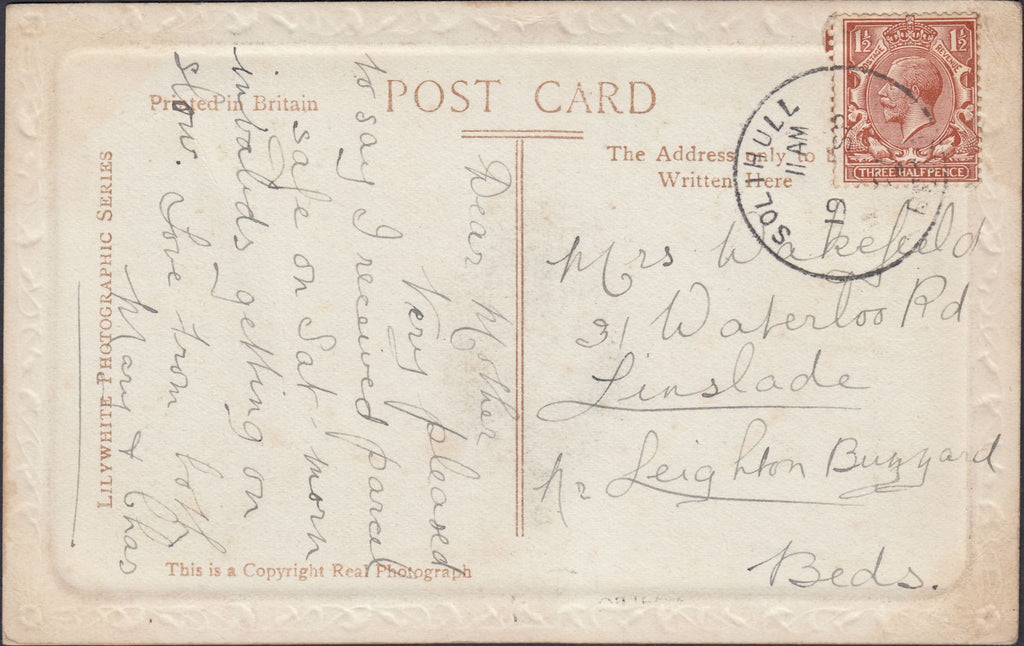 POST CARD
Printed in Britain
The Address only to be
Written Here
LILYWHITE PHOTOGRAPHIC SERIES
This is a Copyright Real Photograph
1½ 1½
POSTAGE REVENUE
THREE HALFPENCE
SOLIHULL
11 AM
19
Dear Mother
Very pleased
to say I received parcel
safe on Sat-morn
invalids getting on
slow. Love from both
Mary & Chas
Mrs Wakefield
31 Waterloo Rd
Linslade
Nr Leighton Buzzard
Beds.